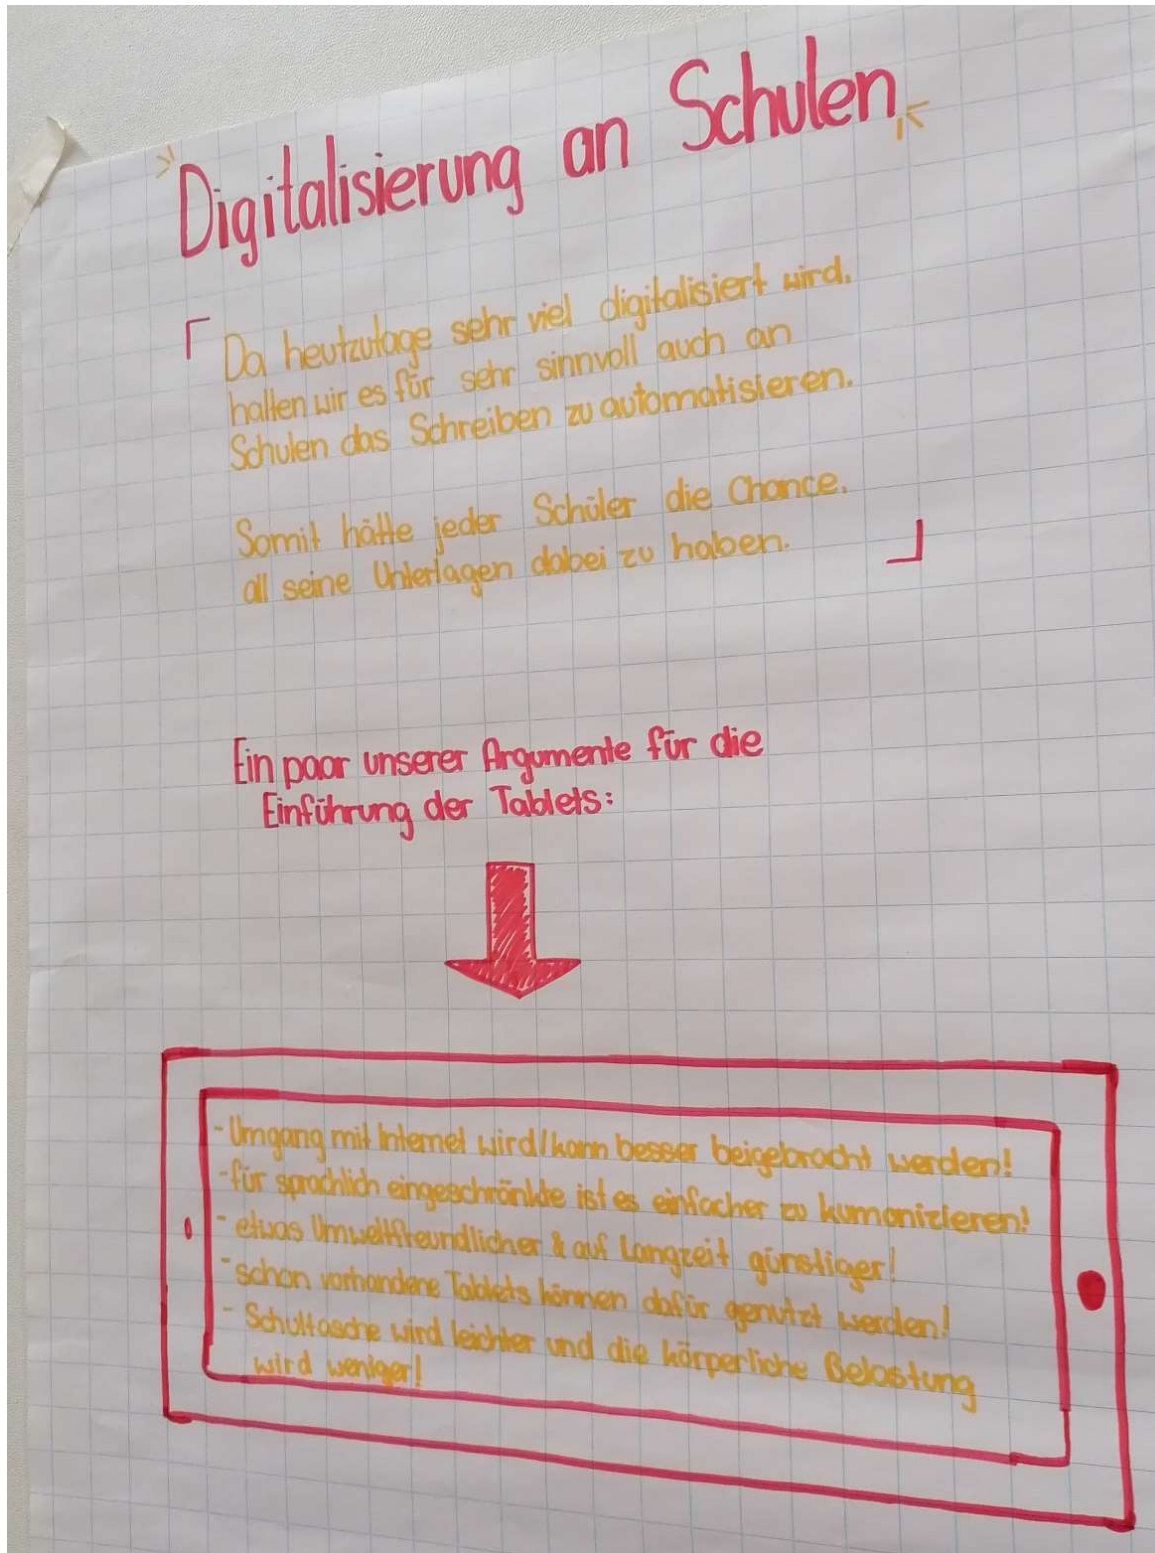 Digitalisierung an Schulen
Da heutzutage sehr viel digitalisiert wird,
halten wir es für sehr sinnvoll auch an
Schulen das Schreiben zu automatisieren.
Somit hätte jeder Schüler die Chance,
all seine Unterlagen dabei zu haben.
Ein paar unserer Argumente für die
Einführung der Tablets:
- Umgang mit Internet wird/kann besser beigebracht werden!
- für sprachlich eingeschränkte ist es einfacher zu kumonizieren!
- etwas Umweltfreundlicher & auf Langzeit günstiger!
- schon vorhandene Tablets können dafür genutzt werden!
- Schultasche wird leichter und die körperliche Belastung
wird weniger!